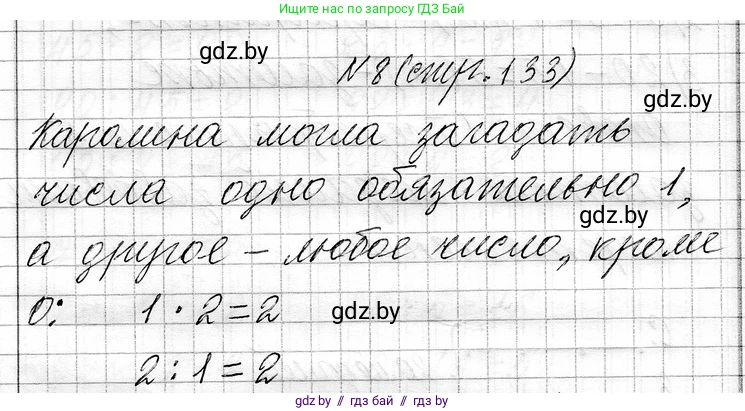 Ищите нас по запросу ГДЗ Бай
gdz.by
N 8 (стр. 133)
gdz.by
Каролина могла загадать
числа одно обязательно 1,
gdz.by
а другое – любое число, кроме
0: 1 · 2 = 2 gdz.by
2 : 1 = 2
gdz.by // гдз бай // gdz.by